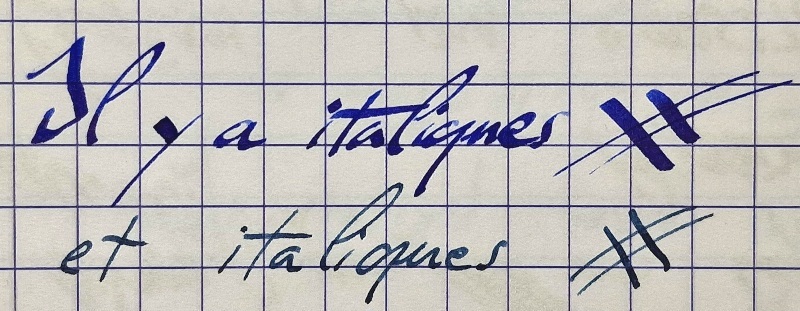 Il y a italiques
et italiques